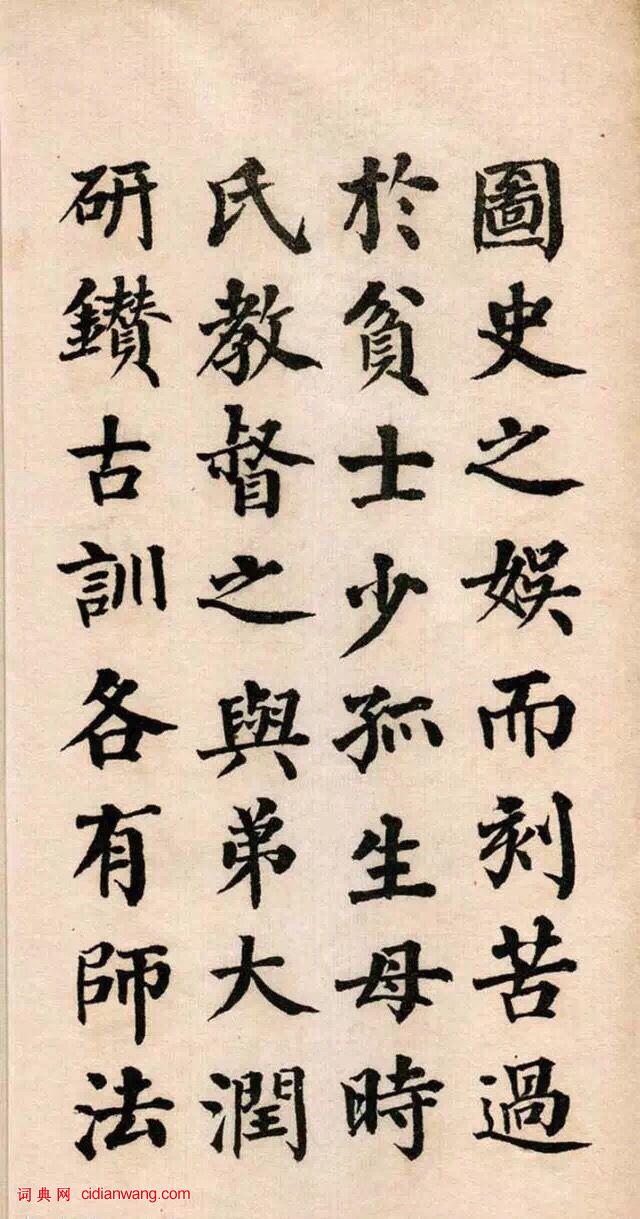 圖史之娛而刻苦過
於貧士少孤生母時
氏教督之與弟大潤
研鑚古訓各有師法
词典网 cidianwang.com